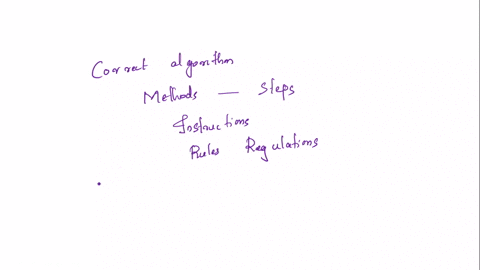 Correct algorithm
Methods — Steps
Instructions
Rules Regulations